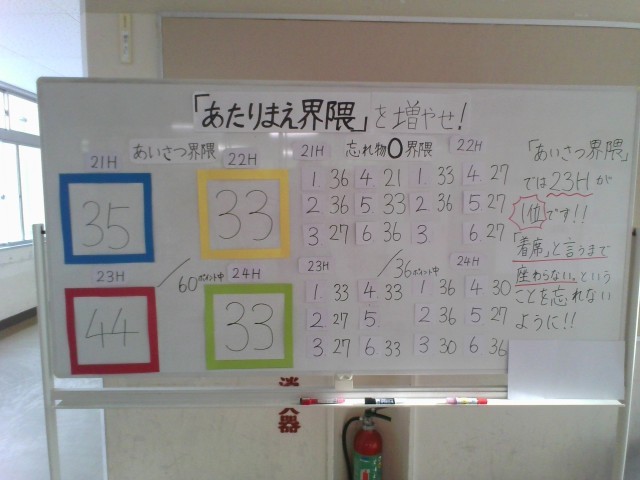 「あたりまえ界隈」を増やせ!
あいさつ界隈
21H
35
22H
33
23H
44
24H
33
60ポイント中
忘れ物0界隈
21H
1. 36 4. 21
2. 36 5. 33
3 27 6. 36
22H
1. 33 4. 27
2. 36 5. 27
3. 6. 27
23H
1. 33 4. 33
2 27 5.
3 27 6 33
24H
1. 36 4. 30
2 36 5. 27
3 30 6 36
36ポイント中
「あいさつ界隈」
では23Hが
1位です!!
「着席」と言うまで
座わらない。という
ことを忘れない
ように!!
器